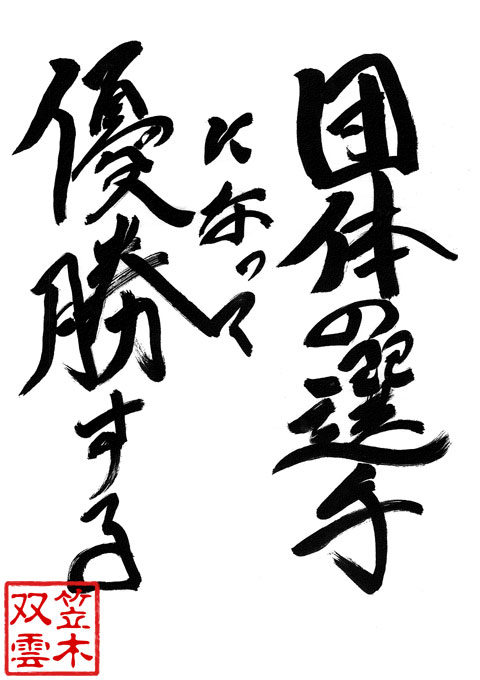 団体の選手
になって
優勝する
笠木
双雲